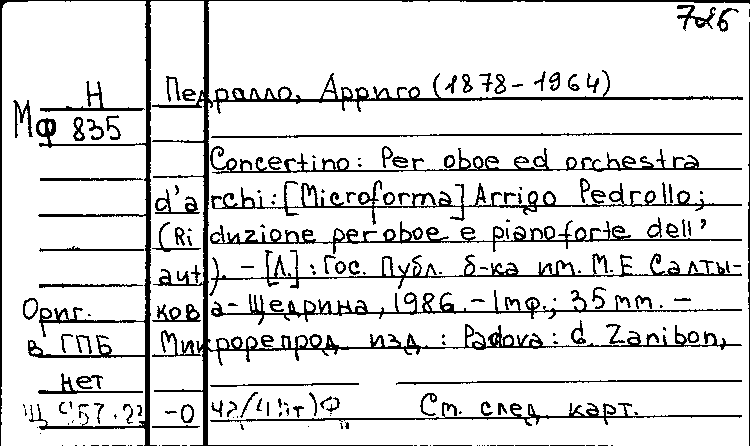 726
Н Педралло, Арриго (1878-1964)
Мф 835
Concertino: Per oboe ed orchestra
d'archi: [Microforma] Arrigo Pedrollo;
(Riduzione per oboe e pianoforte dell'
aut). - [Л.]: Гос. Публ. б-ка им. М.Е Салты-
Ориг. кова-Щедрина, 1986. - 1мф.; 35mm. -
в ГПБ Микрорепрод. изд.: Padova: G. Zanibon,
нет
-0 Ст. след. карт.